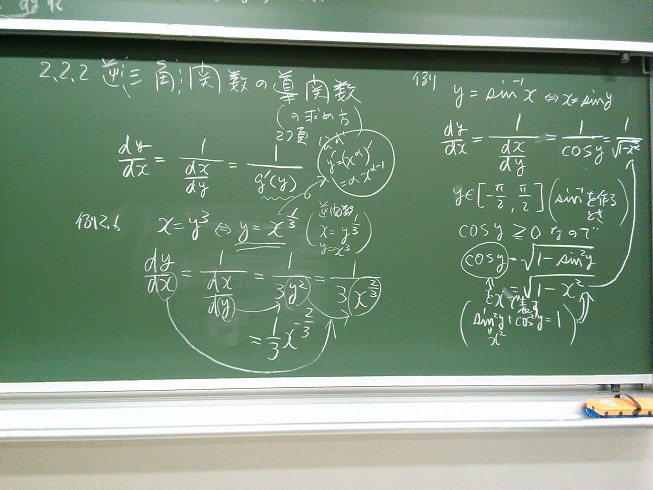 2.2.2 逆三角関数の導関数
(の求め方)
27頁
dy/dx = 1/(dx/dy) = 1/g'(y)
y' = (x^α)'
= αx^{α-1}
例2.6 x = y^3 ⇔ y = x^{1/3}
(逆関数
x = y^{1/3}
y = x^3)
dy/dx = 1/(dx/dy) = 1/(3y^2) = 1/(3x^{2/3})
= 1/3 x^{-2/3}
例
y = sin^{-1}x ⇔ x = sin y
dy/dx = 1/(dx/dy) = 1/cos y = 1/√(1-x^2)
y ∈ [-π/2, π/2] (sin^{-1}を作るとき)
cos y ≥ 0 なので
cos y = √(1 - sin^2 y)
= √(1 - x^2)
xで表す
(sin^2 y + cos^2 y = 1)
x^2